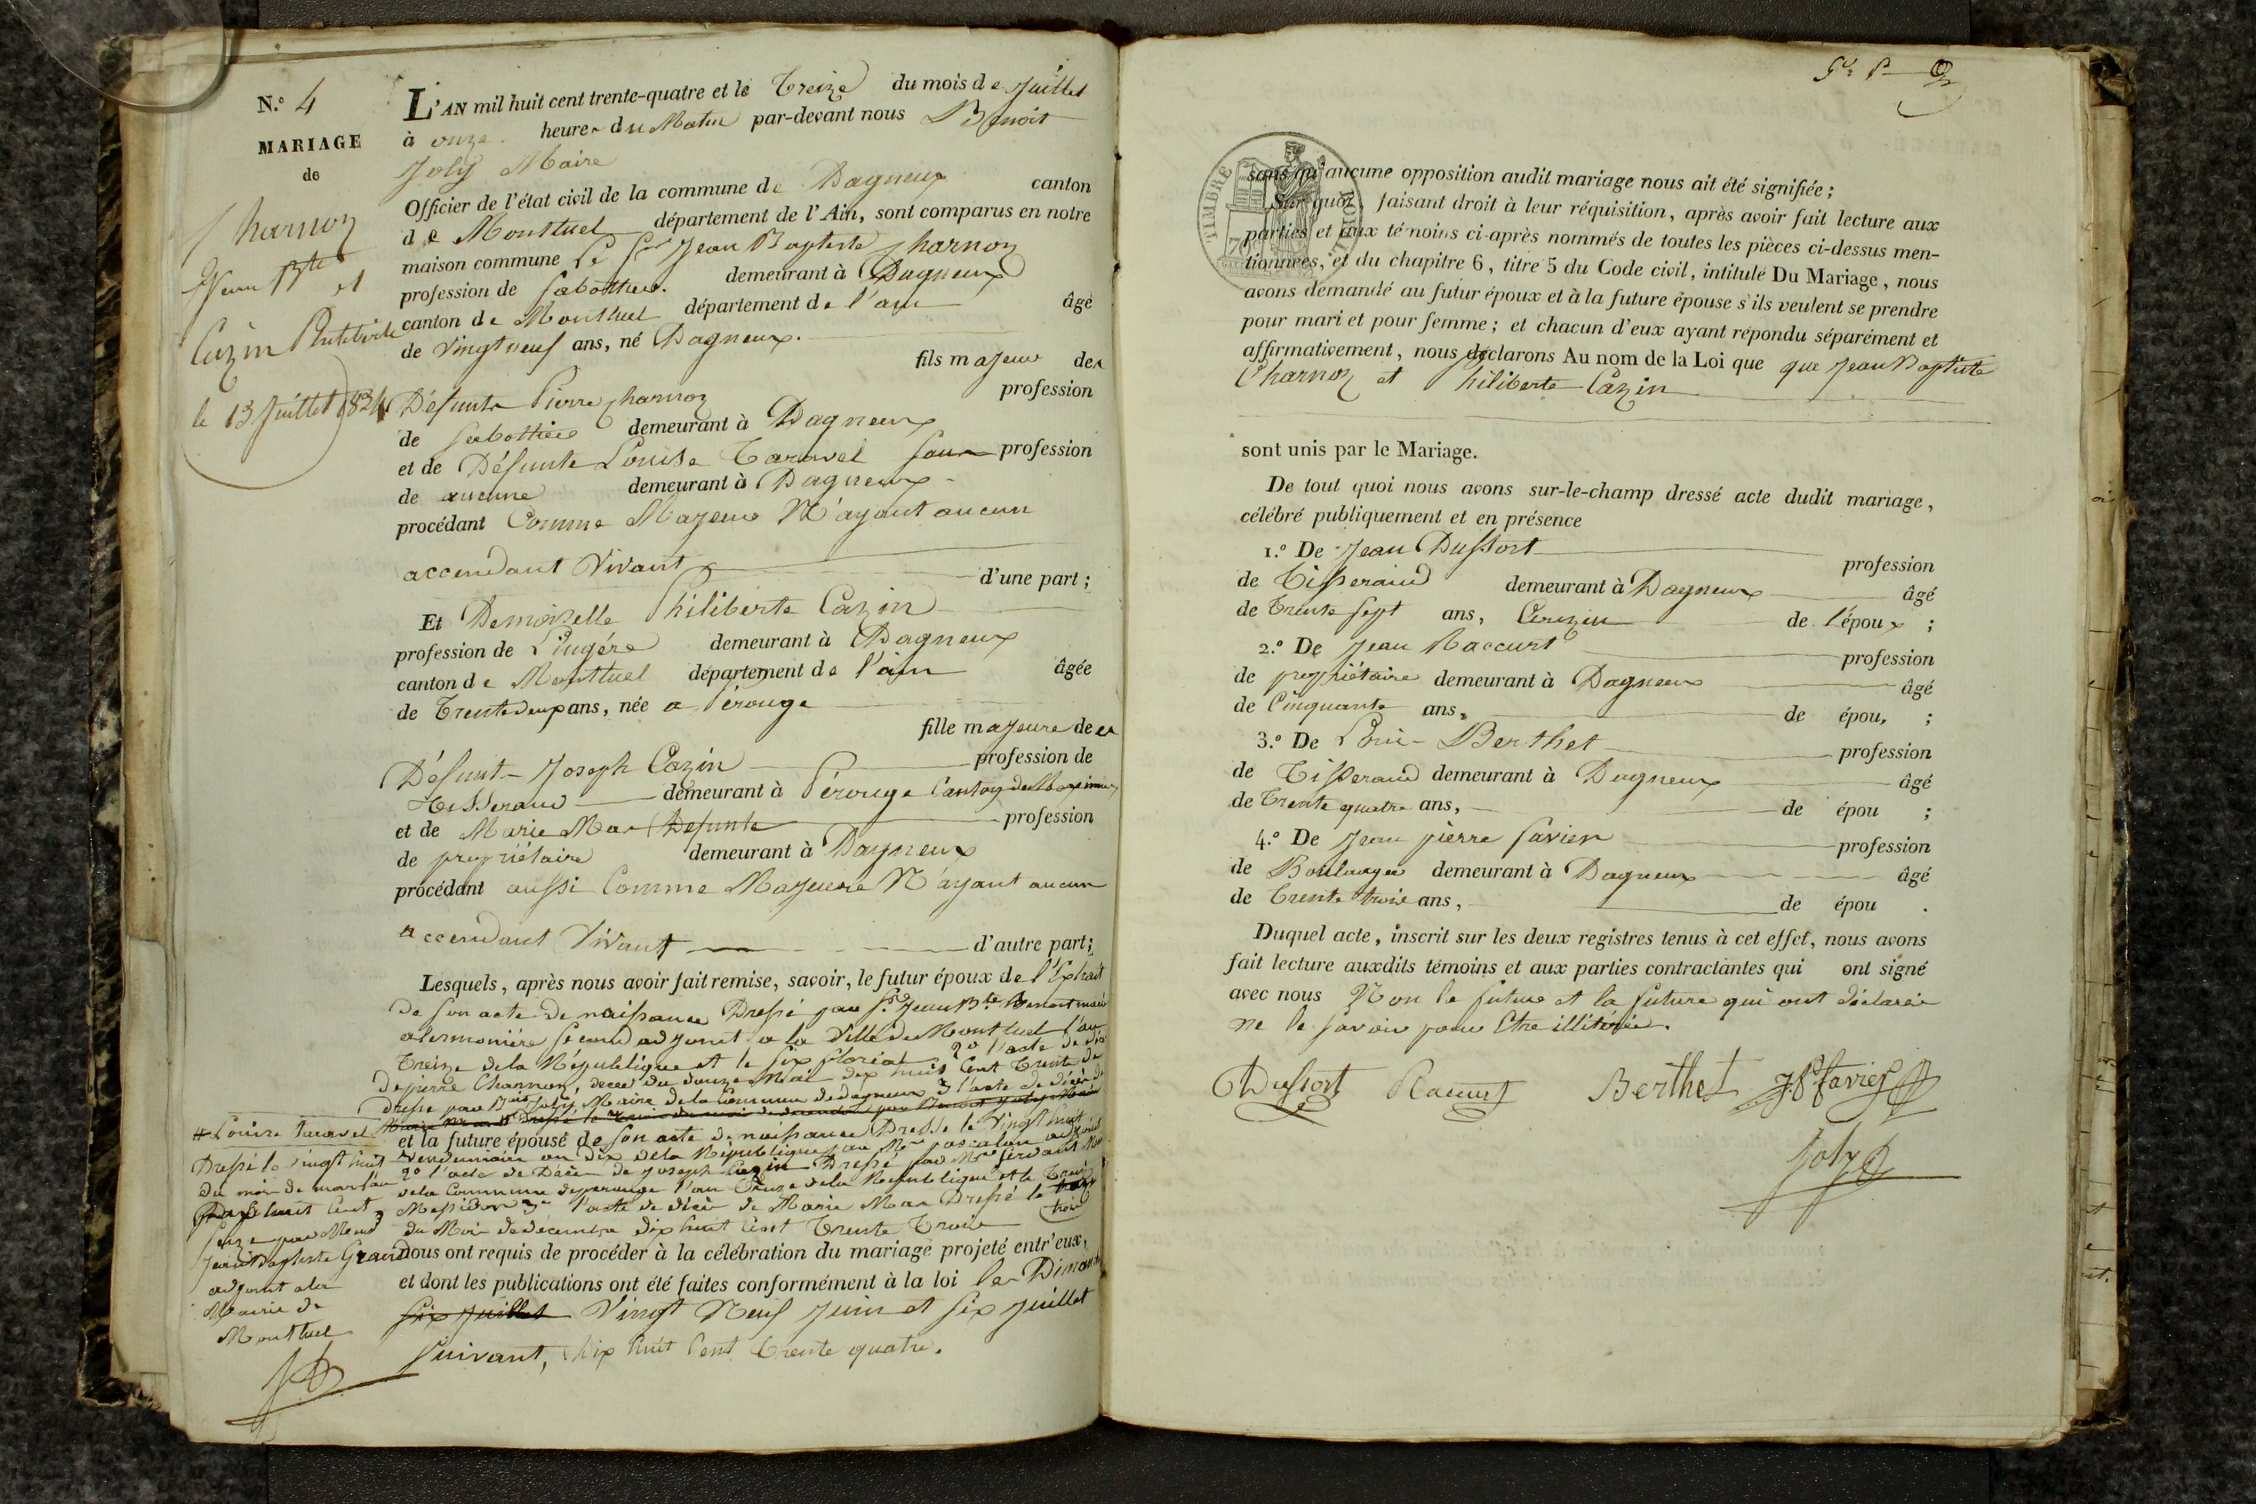 N.º 4
MARIAGE
de
Charnoz
Jean Bte et
Cazin Philiberte
le 13 Juillet 1834
L'AN mil huit cent trente-quatre et le Treize du mois de Juillet
à onze heures du Matin par-devant nous Benoit
Joly Maire
Officier de l'état civil de la commune de Dagneux canton
de Montluel département de l'Ain, sont comparus en notre
maison commune Le Sr Jean Baptiste Charnoz
profession de Sabottier demeurant à Dagneux
canton de Montluel département de l'ain âgé
de Vingt neuf ans, né Dagneux.
fils majeur des
Défunts Pierre Charnoz profession
de Sabottier demeurant à Dagneux
et de Défunte Louise Taravel Sans profession
de aucune demeurant à Dagneux
procédant Comme Majeur N'ayant aucun
accendant Vivant d'une part ;
Et Demoiselle Philiberte Cazin
profession de Lingére demeurant à Dagneux
canton de Montluel département de l'ain âgée
de Trente deux ans, née a Pérouge
fille majeure de
Défunt Joseph Cazin profession de
Tisserand demeurant à Pérouge Canton de Meximieux
et de Marie Mas Defunte profession
de propriétaire demeurant à Dagneux
procédant aussi Comme Majeure N'ayant aucun
accendant Vivant d'autre part ;
Lesquels, après nous avoir fait remise, savoir, le futur époux de l'Extrait
De son acte de naissance Dressé par Sr Jean Bte
second adjoint a la Ville de Montluel l'an
Treize de la République et le six floréal 2º l'acte de
de pierre Charnoz, du douze Mai dix huit Cent Trente
Dressé par Bait Joly Maire de la Commune de dagneux 3 l'acte de décès de
# Louise Taravel
Dressé le Vingt huit
du mois de mars l'an
Dix huit Cent
seize par Mond
Jean Baptiste Grand
adjoint a la
Mairie de
Montluel
et la future épouse de son acte de naissance Dressé le Vingt huit
Vendemiaire an dix de la République par Mr adjoint
2º l'acte de Décès de Joseph Cazin Dressé par Mr
de la Commune de perouge l'an Onze de la République et le Treize
Messidor 3º l'acte de décès de Marie Mas Dressé le trois
du Mois de decembre dix huit Cent Trente Trois
nous ont requis de procéder à la célébration du mariage projeté entr'eux,
et dont les publications ont été faites conformément à la loi les Dimanches
six Juillet Vingt Neuf Juin et six Juillet
suivant, Dix huit Cent Trente quatre.
TIMBRE ROYAL
sans qu'aucune opposition audit mariage nous ait été signifiée ;
Sur quoi, faisant droit à leur réquisition, après avoir fait lecture aux
parties et aux témoins ci-après nommés de toutes les pièces ci-dessus men-
tionnées, et du chapitre 6, titre 5 du Code civil, intitulé Du Mariage, nous
avons demandé au futur époux et à la future épouse s'ils veulent se prendre
pour mari et pour femme ; et chacun d'eux ayant répondu séparément et
affirmativement, nous déclarons Au nom de la Loi que que Jean Baptiste
Charnoz et Philiberte Cazin
sont unis par le Mariage.
De tout quoi nous avons sur-le-champ dressé acte dudit mariage,
célébré publiquement et en présence
1.º De Jean Dussort profession
de Tisserand demeurant à Dagneux âgé
de Trente sept ans, de l'époux ;
2.º De Jean Raccurt profession
de propriétaire demeurant à Dagneux âgé
de Cinquante ans, de épou ;
3.º De Louis Berthet profession
de Tisserand demeurant à Dagneux âgé
de Trente quatre ans, de épou ;
4.º De Jean pierre Favier profession
de Boulanger demeurant à Dagneux âgé
de Trente trois ans, de épou .
Duquel acte, inscrit sur les deux registres tenus à cet effet, nous avons
fait lecture auxdits témoins et aux parties contractantes qui ont signé
avec nous Non le future et la future qui ont déclarée
ne le savoir pour Etre illitérée.
Dussort Raccurt Berthet J P favier
Joly